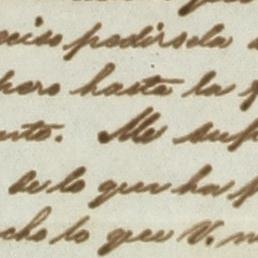 eciso pedirsela
pero hasta la
ento. Me sup
de lo que ha p
cho lo que V. m